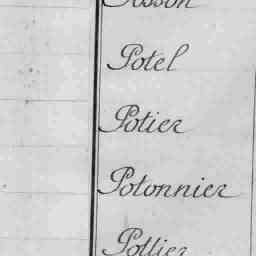 Potel
Potier
Potonnier
Pottier